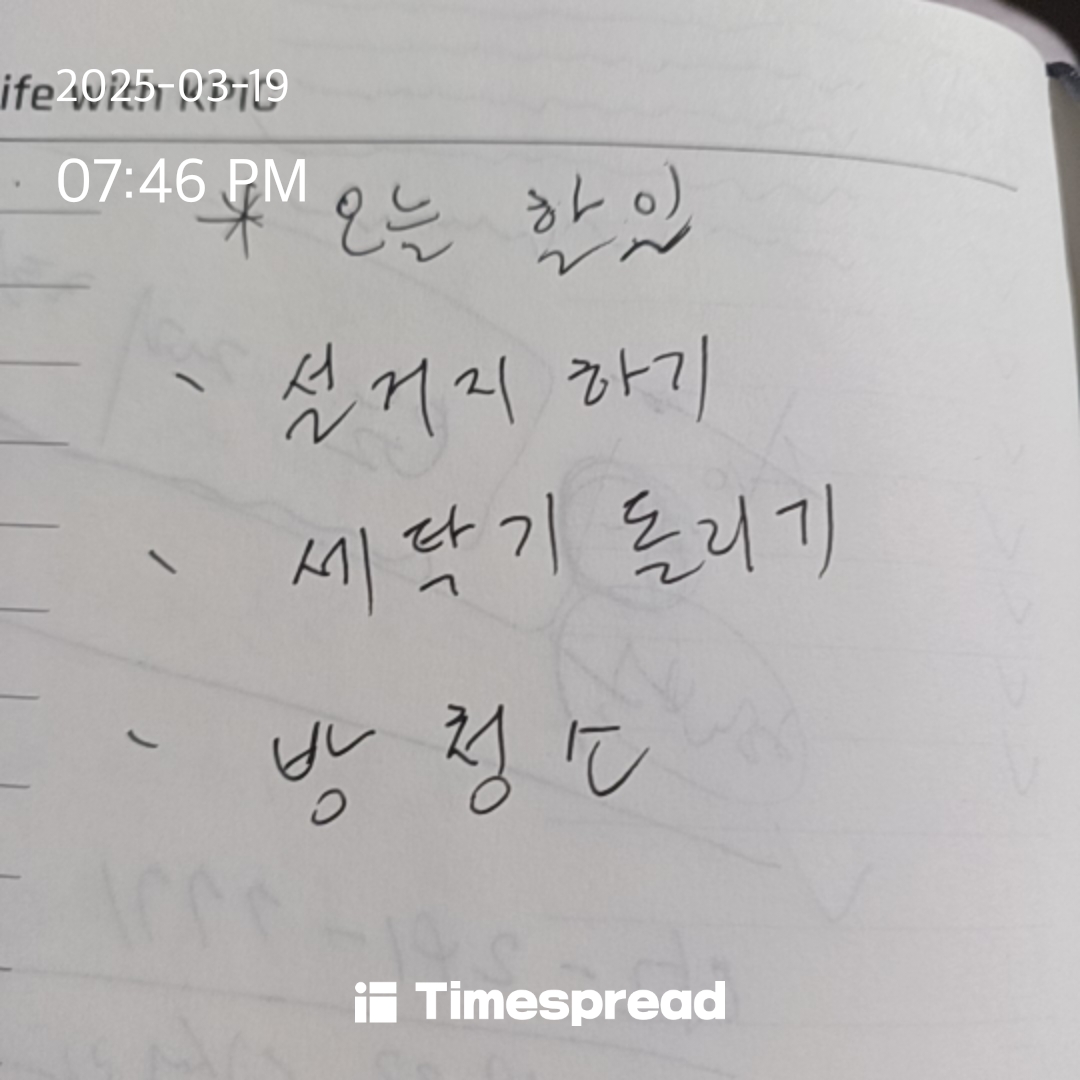 2025-03-19
ife with KPIC
07:46 PM
* 오늘 할 일
- 설거지 하기
- 세탁기 돌리기
- 방 청소
Timespread